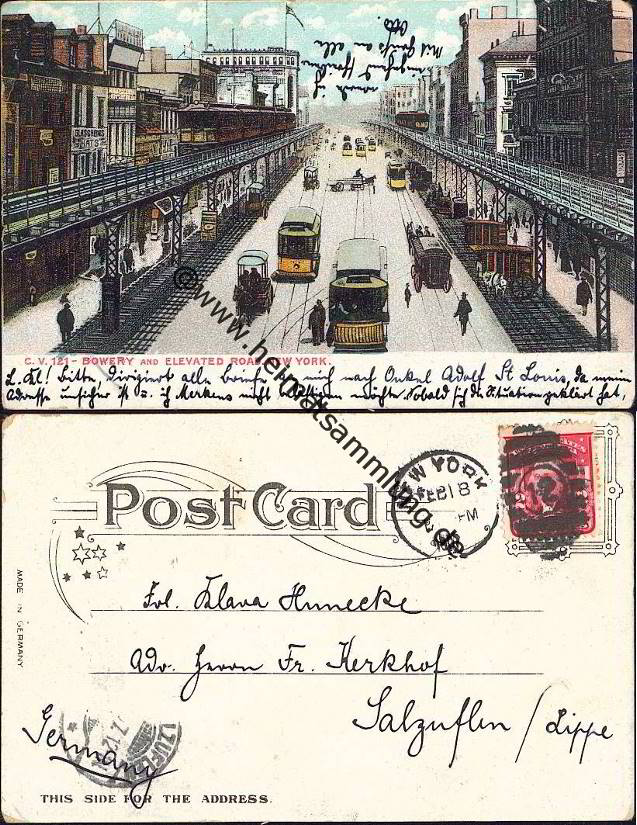 C. V. 121 - BOWERY AND ELEVATED ROAD, NEW YORK.
L. Kl! Bitte, dirigiert alle Briefe an mich nach Onkel Adolf St Louis, da meine
Adresse unsicher ist u. ich Merkens nicht belästigen möchte. Sobald sich die Situation geklärt hat,
werde ich
Mit Gruß an alle
Otto.
@www.heimatsammlung.de
POST CARD
NEW YORK
FEB 18
PM
MADE IN GERMANY
Frl. Klara Hunecke
Adr. Herrn Fr. Kerkhof
Salzuflen / Lippe
Germany
THIS SIDE FOR THE ADDRESS.